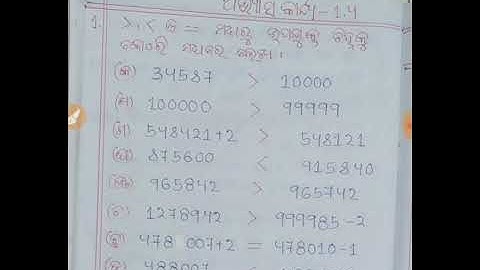 ଅଭ୍ୟାସ କାର୍ଯ୍ୟ - 1.4
1. >, < ଓ = ମଧ୍ୟରୁ
(କ) 34587 > 10000
(ଖ) 100000 > 99999
(ଗ) 548421+2 > 548121
(ଘ) 875600 < 915840
(ଙ) 965842 > 965742
(ଚ) 1278942 > 999985-2
(ଛ) 478 007+2 = 478010-1
(ଜ) 488007